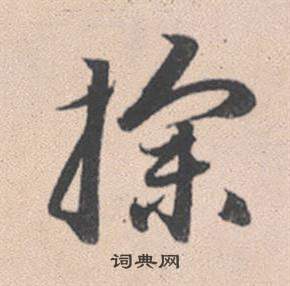 探
词典网